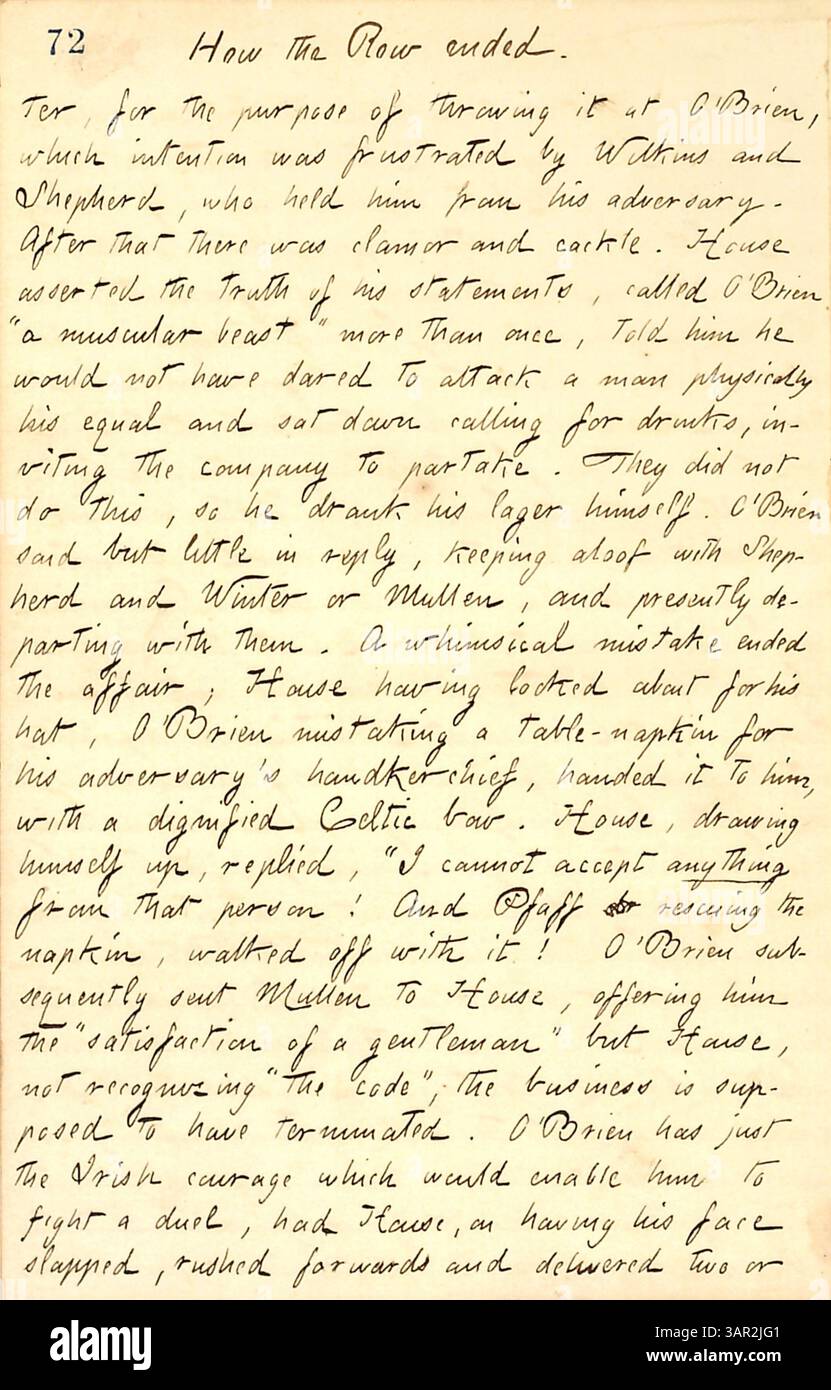 72 How the Row ended.
ter, for the purpose of throwing it at O'Brien,
which intention was frustrated by Wilkins and
Shepherd, who held him from his adversary.
After that there was clamor and cackle. House
asserted the truth of his statements, called O'Brien
"a muscular beast" more than once, told him he
would not have dared to attack a man physically
his equal and sat down calling for drinks, in-
viting the company to partake. They did not
do this, so he drank his lager himself. O'Brien
said but little in reply, keeping aloof with Shep-
herd and Winter or Mullen, and presently de-
parting with them. A whimsical mistake ended
the affair; House having looked about for his
hat, O'Brien mistaking a table-napkin for
his adversary's handkerchief, handed it to him,
with a dignified Celtic bow. House, drawing
himself up, replied, "I cannot accept anything
from that person! And Pfaff rescuing the
napkin, walked off with it! O'Brien sub-
sequently sent Mullen to House, offering him
the "satisfaction of a gentleman" but House,
not recognizing "the code", the business is sup-
posed to have terminated. O'Brien has just
the Irish courage which would enable him to
fight a duel, had House, on having his face
slapped, rushed forwards and delivered two or
alamy
alamy
Image ID: 3AR2JG1
www.alamy.com